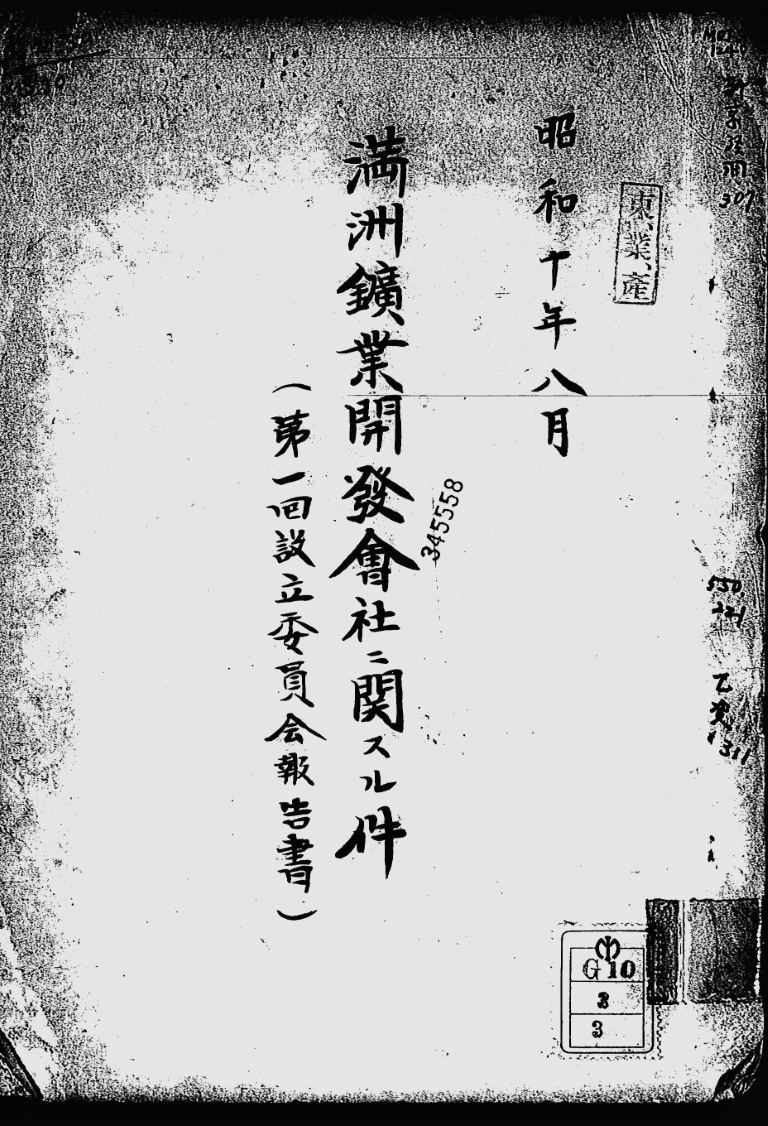 昭和十年八月
満洲鑛業開發會社ニ関スル件
（第一回設立委員会報告書）
東、業、産
345558
G 10
3
3
307
550
221
1311